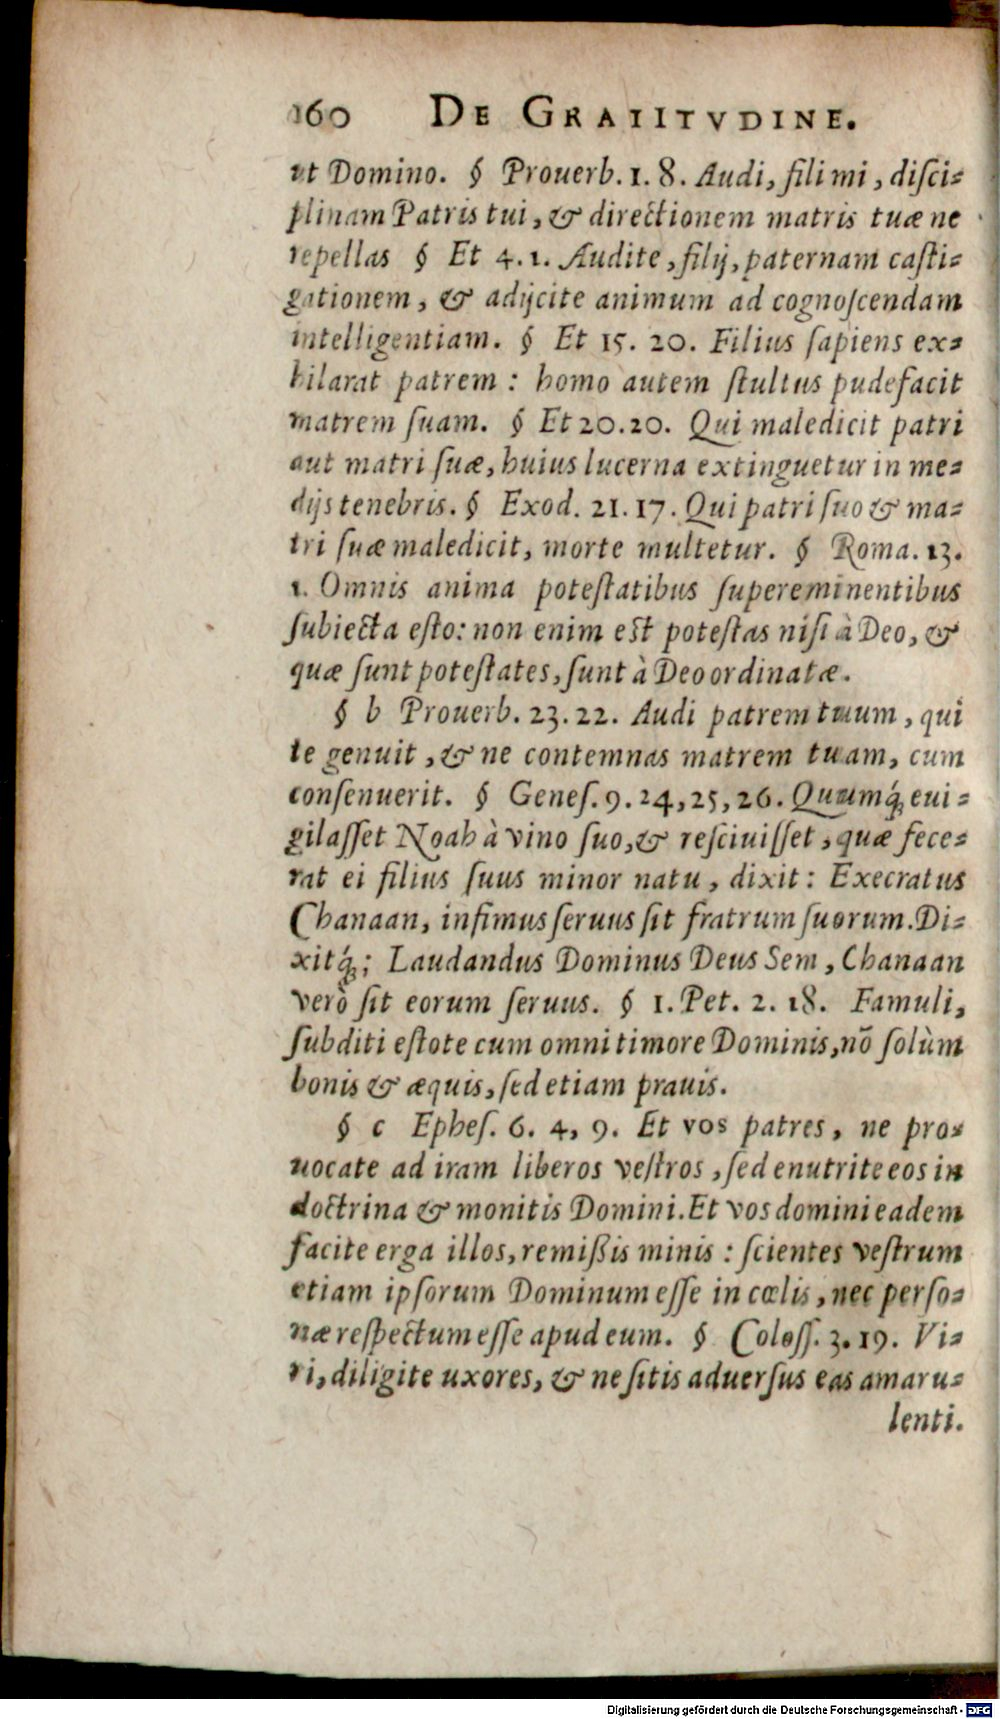 160 DE GRATIITVDINE.
vt Domino. § Prouerb. 1. 8. Audi, fili mi, disci-
plinam Patris tui, & directionem matris tuæ ne
repellas § Et 4. 1. Audite, filij, paternam casti-
gationem, & adijcite animum ad cognoscendam
intelligentiam. § Et 15. 20. Filius sapiens ex-
hilarat patrem : homo autem stultus pudefacit
matrem suam. § Et 20. 20. Qui maledicit patri
aut matri suæ, huius lucerna extinguetur in me-
dijs tenebris. § Exod. 21. 17. Qui patri suo & ma-
tri suæ maledicit, morte multetur. § Roma. 13.
1. Omnis anima potestatibus supereminentibus
subiecta esto: non enim est potestas nisi à Deo, &
quæ sunt potestates, sunt à Deo ordinatæ.
§ b Prouerb. 23. 22. Audi patrem tuum, qui
te genuit, & ne contemnas matrem tuam, cum
consenuerit. § Genes. 9. 24, 25, 26. Quumq́; eui-
gilasset Noah à vino suo, & resciuisset, quæ fece-
rat ei filius suus minor natu, dixit: Execratus
Chanaan, infimus seruus sit fratrum suorum. Di-
xitq́; ; Laudandus Dominus Deus Sem, Chanaan
verò sit eorum seruus. § 1. Pet. 2. 18. Famuli,
subditi estote cum omni timore Dominis, nō solùm
bonis & æquis, sed etiam prauis.
§ c Ephes. 6. 4, 9. Et vos patres, ne pro-
uocate ad iram liberos vestros, sed enutrite eos in
doctrina & monitis Domini. Et vos domini eadem
facite erga illos, remißis minis : scientes vestrum
etiam ipsorum Dominum esse in cœlis, nec perso-
næ respectum esse apud eum. § Coloss. 3. 19. Vi-
ri, diligite uxores, & ne sitis aduersus eas amaru-
lenti.
Digitalisierung gefördert durch die Deutsche Forschungsgemeinschaft - DFG